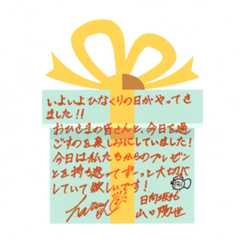 いよいよひなくりの日がやってき
ました!!
おひさまの皆さんと、今日を過
ごすのを楽しみにしていました!
今日は私たちからのプレゼン
トを持ち返ってずーっと大切に
していて欲しいです!
日向坂46
山口陽世